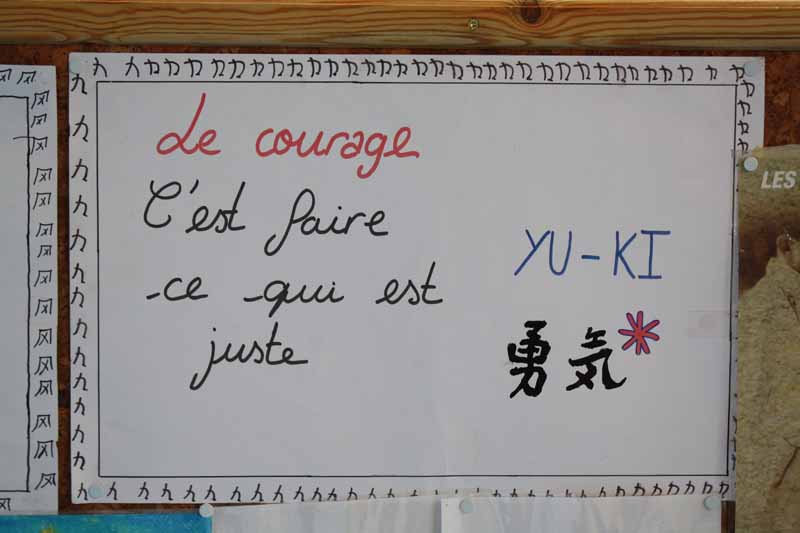 Le courage
C'est faire
-ce -qui est
juste
YU-KI
勇気
LES